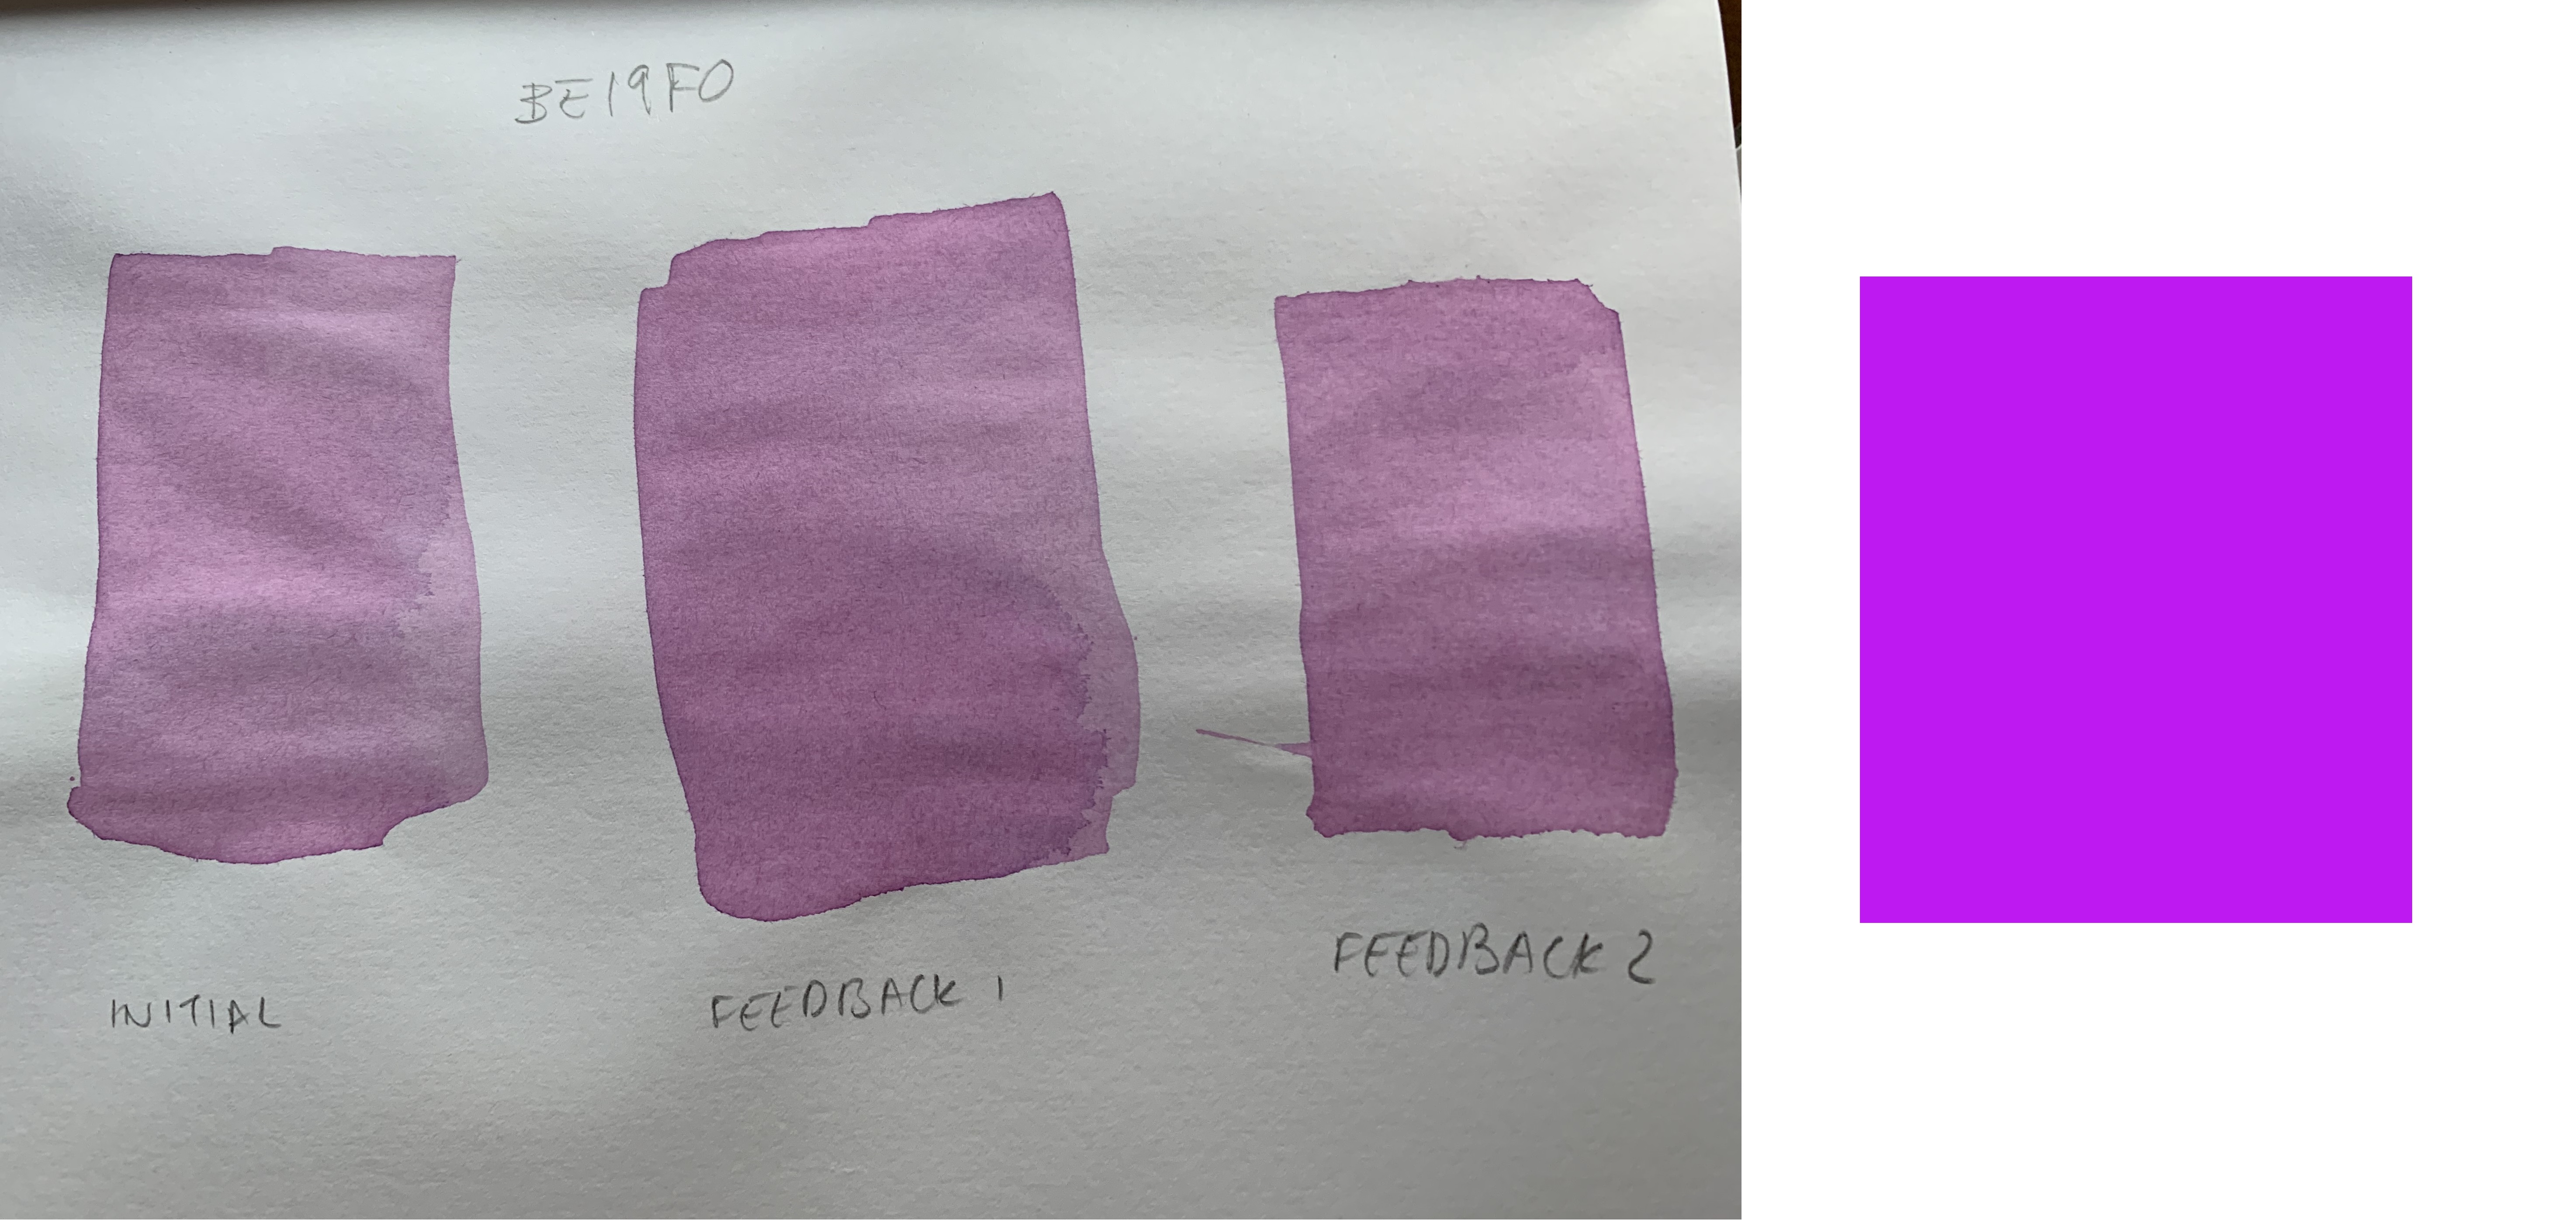 BE19F0
INITIAL
FEEDBACK 1
FEEDBACK 2